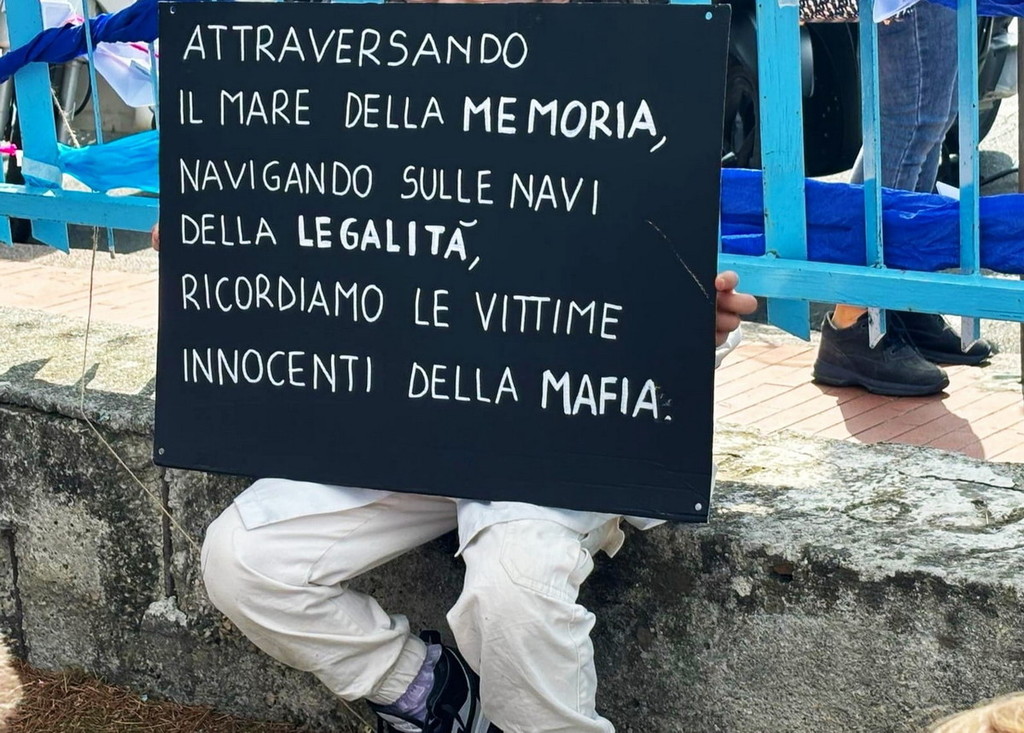 ATTRAVERSANDO
IL MARE DELLA MEMORIA,
NAVIGANDO SULLE NAVI
DELLA LEGALITÀ,
RICORDIAMO LE VITTIME
INNOCENTI DELLA MAFIA.